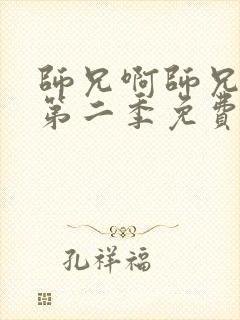 師兄啊師兄
第二季免費
孔祥福